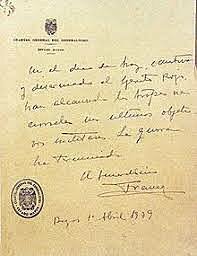 CUARTEL GENERAL DEL GENERALISIMO
ESTADO MAYOR
En el dia de hoy, cautivo
y desarmado el Ejército Rojo,
han alcanzado las tropas na-
cionales sus ultimos objeti-
vos militares. La guerra
ha terminado.
El Generalísimo
Franco
Burgos 1º Abril 1939